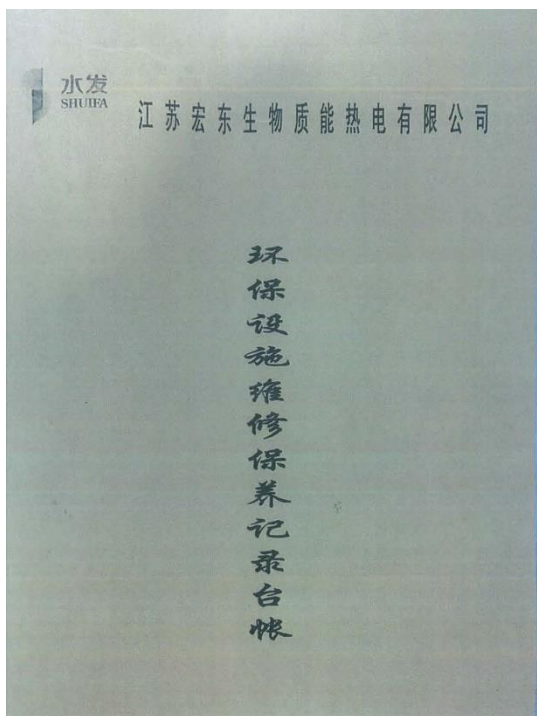 水发
SHUIFA
江苏宏东生物质能热电有限公司
环保设施维修保养记录台帐